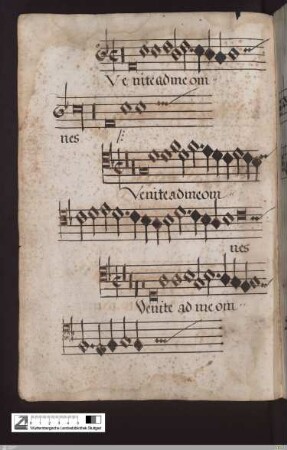 Ve niteadmeom
nes /:
Veniteadmeom
nes
Venite ad me om
Württembergische Landesbibliothek Stuttgart